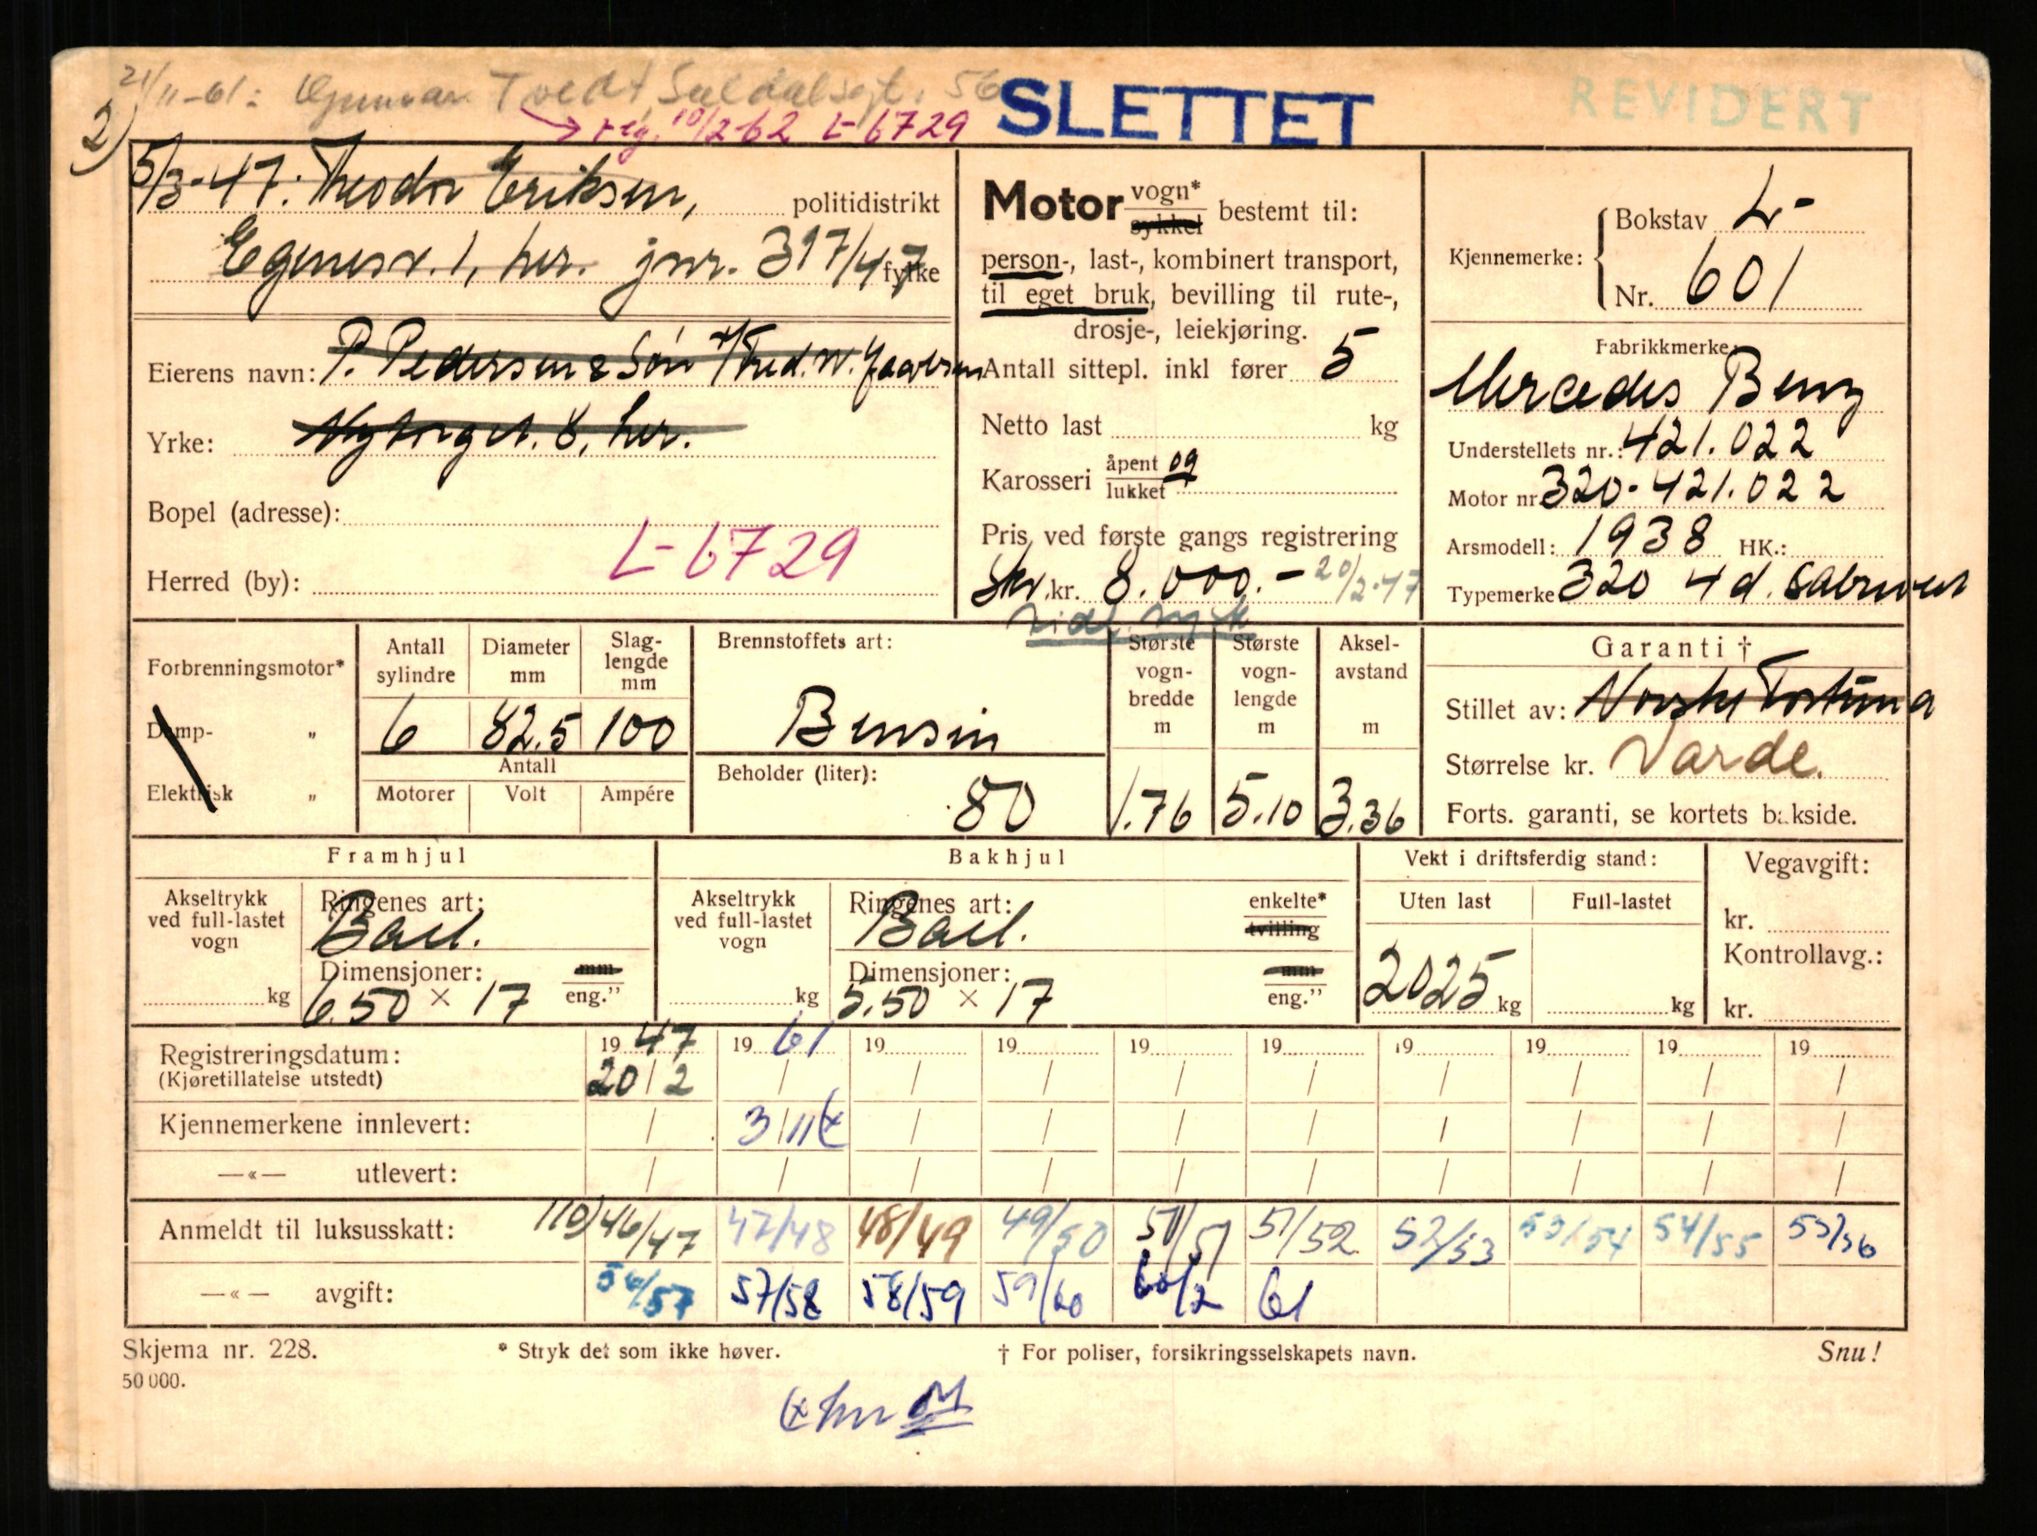 21/11-61: Gunnar Tvedt Suldalsgt. 56
SLETTET
REVIDERT
2)
reg. 10/2-62 L-6729
5/3-47. Theodor Eriksen, politidistrikt
Egenesv. 1, her. jnr. 317/47 fylke
Eierens navn: P. Pedersen & Søn v/Fred. W.
Yrke: Nytorget. 8, her.
Bopel (adresse):
L-6729
Herred (by):
Motor vogn* sykkel bestemt til:
person-, last-, kombinert transport,
til eget bruk, bevilling til rute-,
drosje-, leiekjøring.
Antall sittepl. inkl fører 5
Netto last kg
Karosseri åpent og lukket
Pris ved første gangs registrering
kr. 8.000.- 20/2-47
Kjennemerke: Bokstav L-
Nr. 601
Fabrikkmerke:
Mercedes Benz
Understellets nr.: 421.022
Motor nr. 320-421.022
Årsmodell: 1938 HK.:
Typemerke 320 4 d.
Forbrenningsmotor*
Damp- "
Elektrisk "
Antall sylindre
6
Diameter mm
82.5
Slag-lengde mm
100
Antall
Motorer Volt Ampére
Brennstoffets art:
Bensin
Beholder (liter):
80
Største vogn-bredde m
1.76
Største vogn-lengde m
5.10
Aksel-avstand m
3.36
Garanti †
Stillet av: Norske Fortuna
Størrelse kr. Varde.
Forts. garanti, se kortets bakside.
Framhjul
Akseltrykk ved full-lastet vogn
kg
Ringenes art:
Ball.
Dimensjoner: mm
6.50 × 17 eng."
Bakhjul
Akseltrykk ved full-lastet vogn
kg
Ringenes art: enkelte*
Ball. tvilling
Dimensjoner: mm
5.50 × 17 eng."
Vekt i driftsferdig stand:
Uten last Full-lastet
2025 kg kg
Vegavgift:
kr.
Kontrollavg.:
kr.
Registreringsdatum: 19 47 19 61 19 19 19 19 19 19 19 19
(Kjøretillatelse utstedt) 20/2 / / / / / / / / /
Kjennemerkene innlevert: / 3/11 / / / / / / / /
—«— utlevert: / / / / / / / / / /
Anmeldt til luksusskatt: 110) 46/47 47/48 48/49 49/50 50/51 51/52 52/53 53/54 54/55 55/56
—«— avgift: 56/57 57/58 58/59 59/60 60/2 61
Skjema nr. 228. * Stryk det som ikke høver. † For poliser, forsikringsselskapets navn. Snu!
50 000.